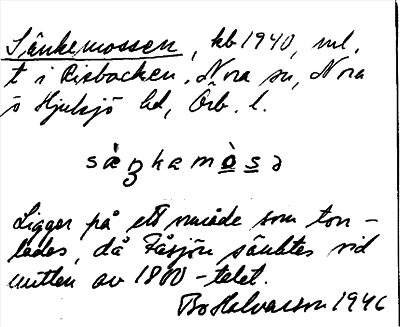 Sänkemossen, kb 1940, ml.
t i Risbacken, Nora sn, Nora
o Hjulsjö bd, Örb. l.
sàŋkamòsə
Ligger på ett område som torr-
lades, då Fåsjön sänktes vid
mitten av 1800-talet.
Bo Halvarson 1946